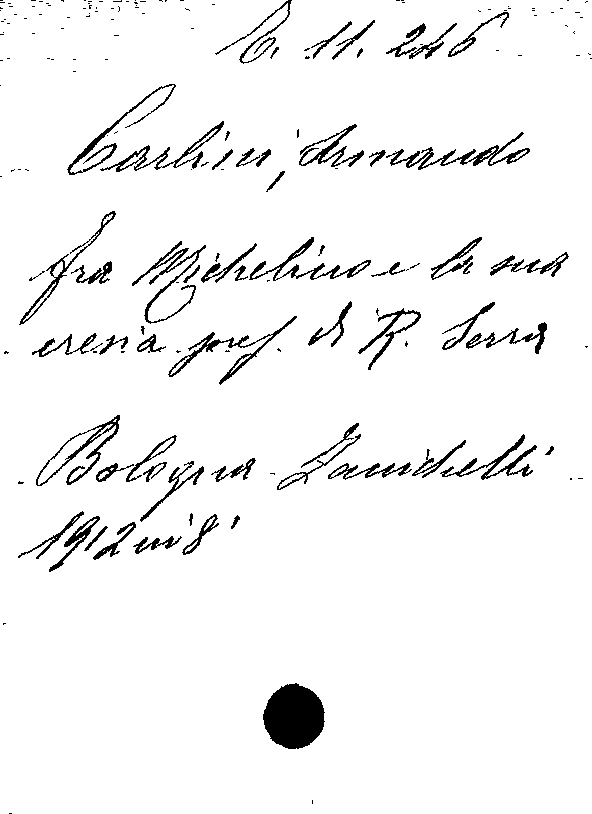 E. 11. 246
Carlini, Armando
fra Michelino e la sua
eresia pref. di R. Serra
Bologna Zanichelli
1912 in 8°